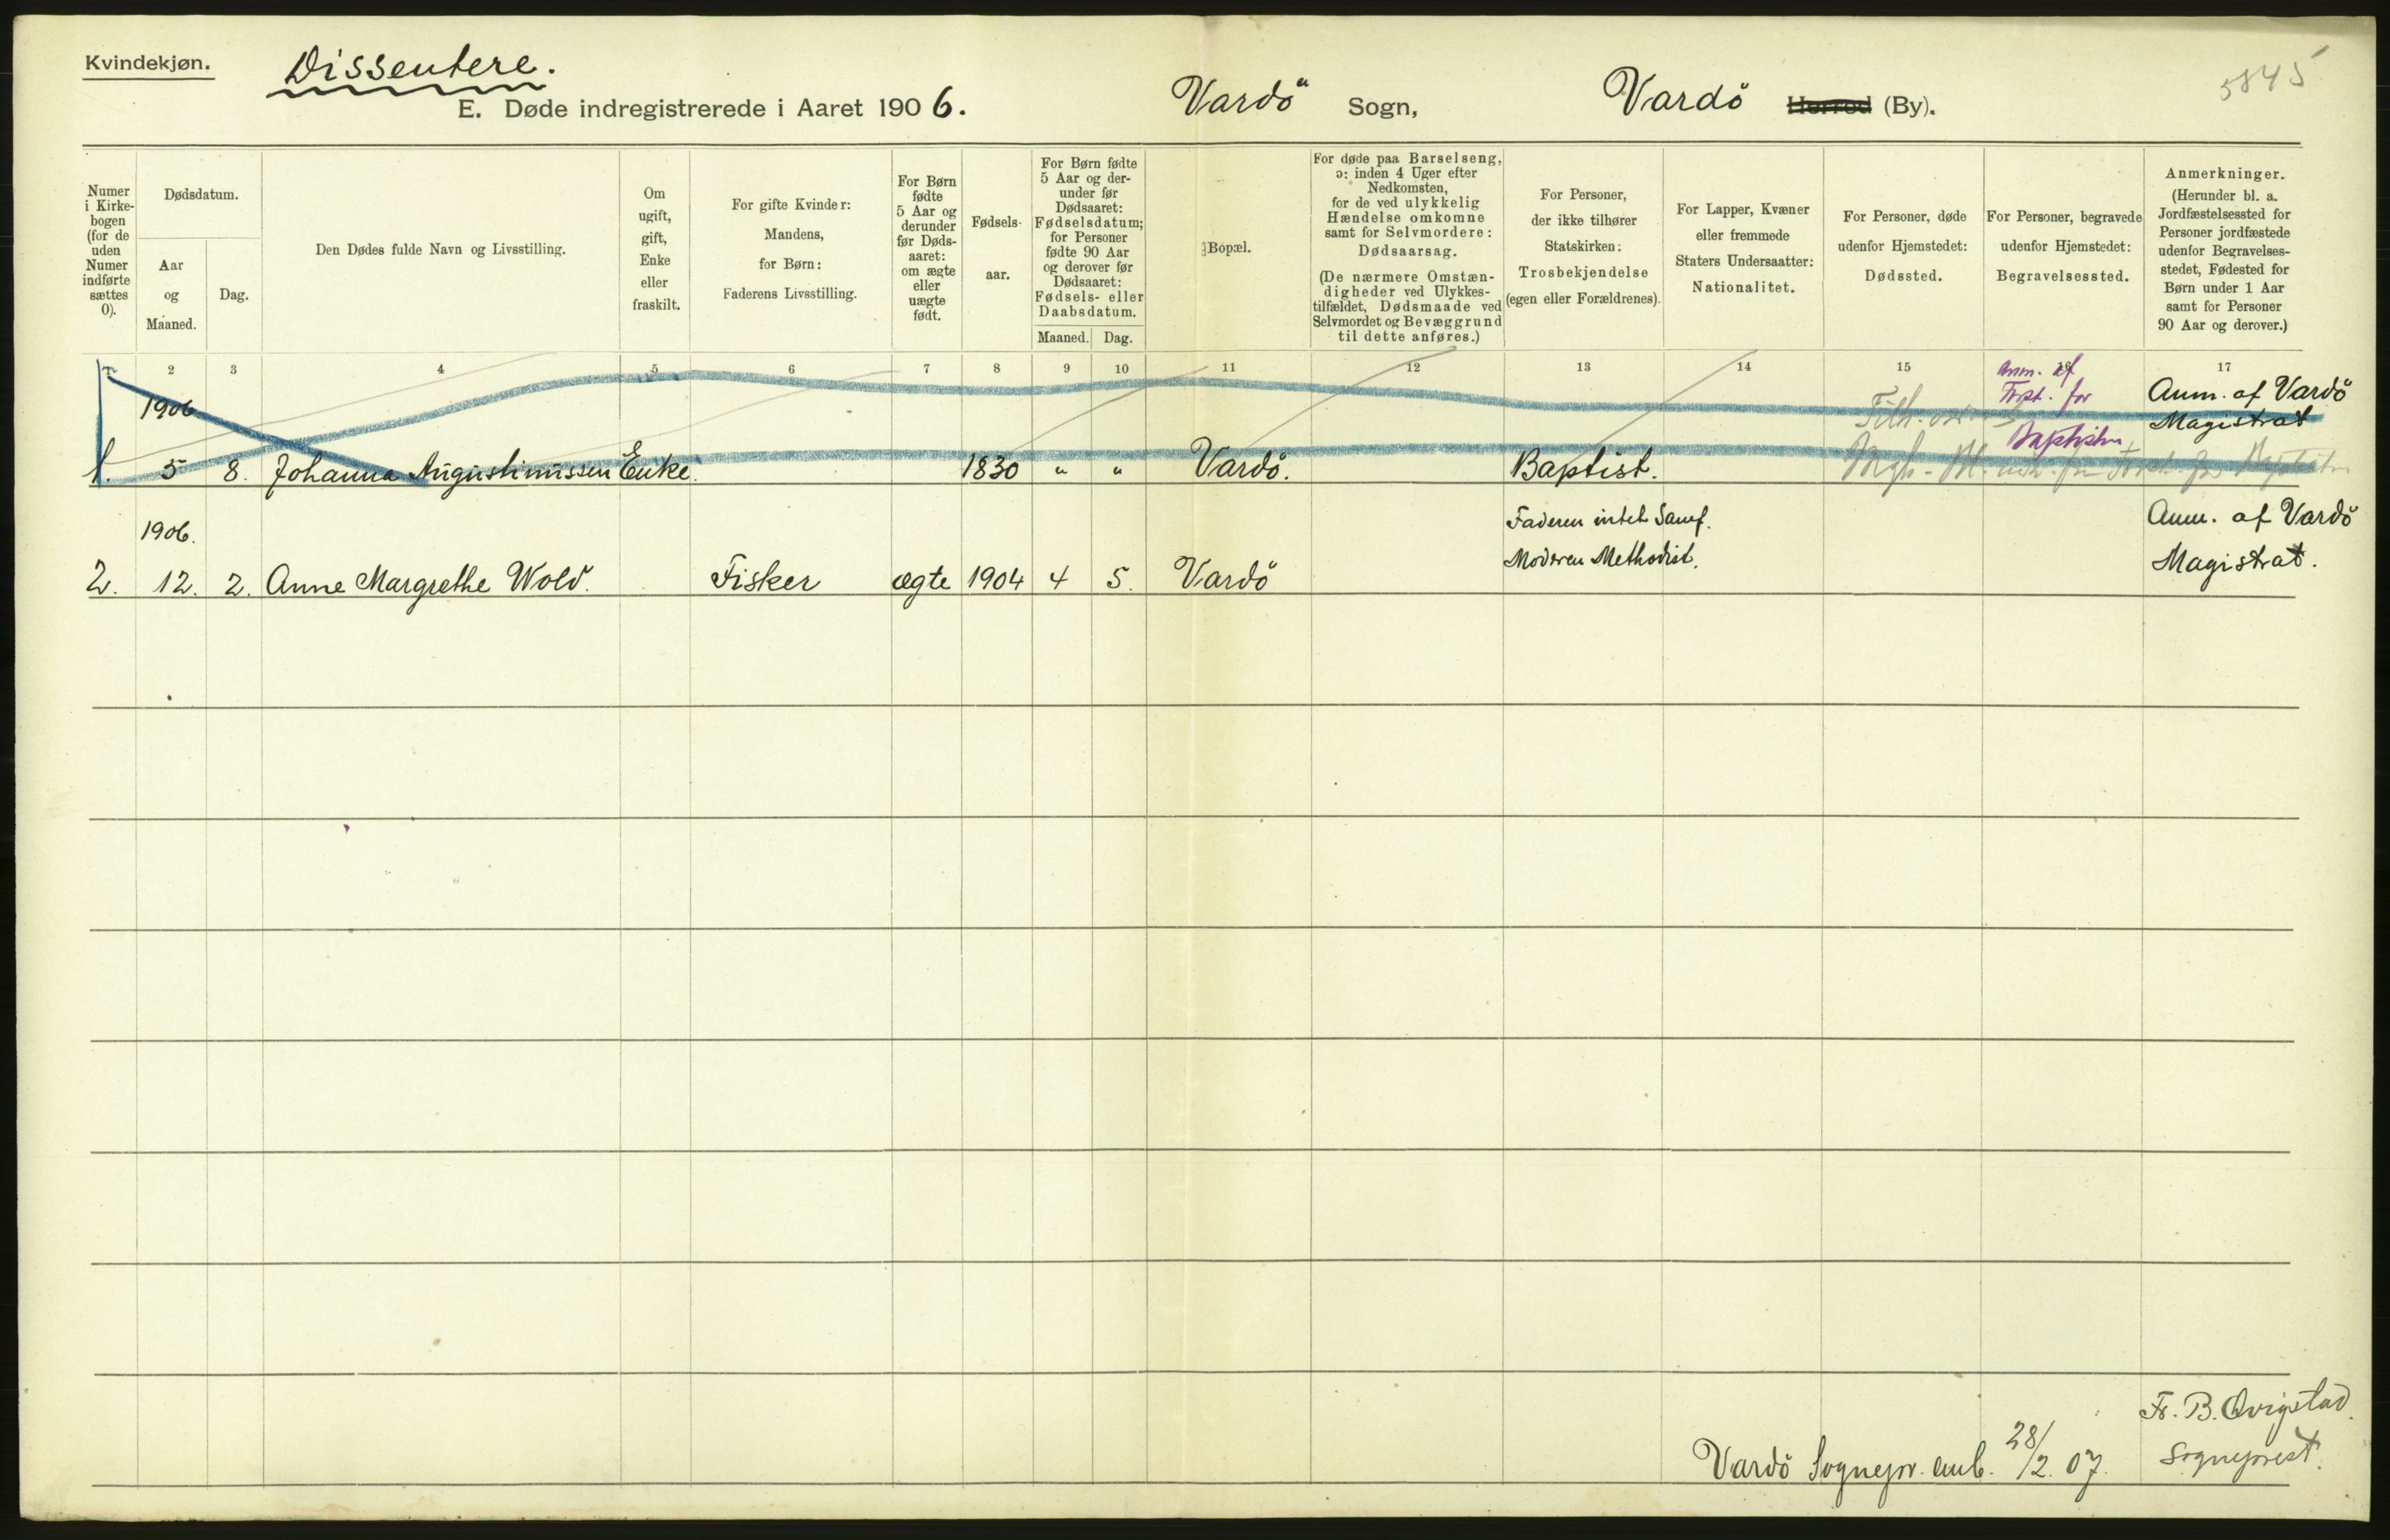 Kvindekjøn.
Dissentere.
5845
E. Døde indregistrerede i Aaret 1906. Vardö Sogn, Vardö Herred (By).
Numer
i Kirke-
bogen
(for de
uden
Numer
indførte
sættes
0).
Dødsdatum.
Aar
og
Maaned.
Dag.
Den Dødes fulde Navn og Livsstilling.
Om
ugift,
gift,
Enke
eller
fraskilt.
For gifte Kvinder:
Mandens,
for Børn:
Faderens Livsstilling.
For Børn
fødte
5 Aar og
derunder
før Døds-
aaret:
om ægte
eller
uægte
født.
Fødsels-
aar.
For Børn fødte
5 Aar og der-
under før
Dødsaaret:
Fødselsdatum;
for Personer
fødte 90 Aar
og derover før
Dødsaaret:
Fødsels- eller
Daabsdatum.
Maaned. Dag.
Bopæl.
For døde paa Barselseng,
ɔ: inden 4 Uger efter
Nedkomsten,
for de ved ulykkelig
Hændelse omkomne
samt for Selvmordere:
Dødsaarsag.
(De nærmere Omstæn-
digheder ved Ulykkes-
tilfældet, Dødsmaade ved
Selvmordet og Bevæggrund
til dette anføres.)
For Personer,
der ikke tilhører
Statskirken:
Trosbekjendelse
(egen eller Forældrenes).
For Lapper, Kvæner
eller fremmede
Staters Undersaatter:
Nationalitet.
For Personer, døde
udenfor Hjemstedet:
Dødssted.
For Personer, begravede
udenfor Hjemstedet:
Begravelsessted.
Anmerkninger.
(Herunder bl. a.
Jordfæstelsessted for
Personer jordfæstede
udenfor Begravelses-
stedet, Fødested for
Børn under 1 Aar
samt for Personer
90 Aar og derover.)
1 2 3 4 5 6 7 8 9 10 11 12 13 14 15 16 17
1906
Anm. af
Forst. for
Baptister
Anm. af Vardö
Magistrat
1. 5 8. Johanna Augustinussen Enke. 1830 " " Vardö. Baptist.
1906.
Faderen intet Samf.
Moderen Methodist.
Anm. af Vardö
Magistrat.
2. 12. 2. Anne Margrethe Wold. Fisker ægte 1904 4 5. Vardö
Fr. B. Qvigstad.
Sogneprest.
Vardö Sognepr. emb. 28/2. 07.